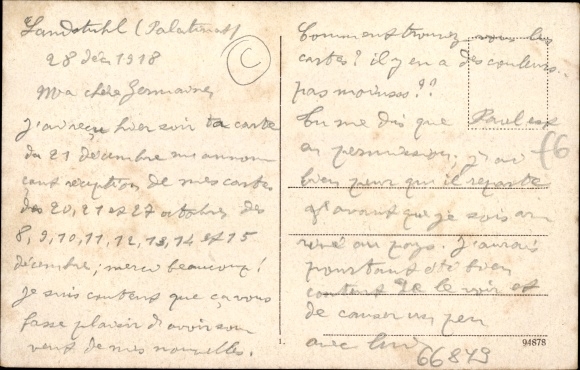 Landstuhl (Palatinat)
28 déc 1918
Ma chère Germaine,
J'ai reçu hier soir ta carte
du 21 décembre m'annon
cant réception de mes cartes
des 20, 21 et 27 octobre, des
8, 9, 10, 11, 12, 13, 14 et 15
décembre; merci beaucoup!
Je suis content que ça vous
fasse plaisir d'avoir sou
vent de mes nouvelles.
Comment trouvez-vous les
cartes? il y en a des couleurs..
pas moins??
Tu me dis que Paul est
en permission; j'ai
bien peur qu'il reparte
avant que je sois ar
rivé au pays. J'aurais
pourtant été bien
content de le voir et
de causer un peu
avec lui
C
f6
1.
94878
66879